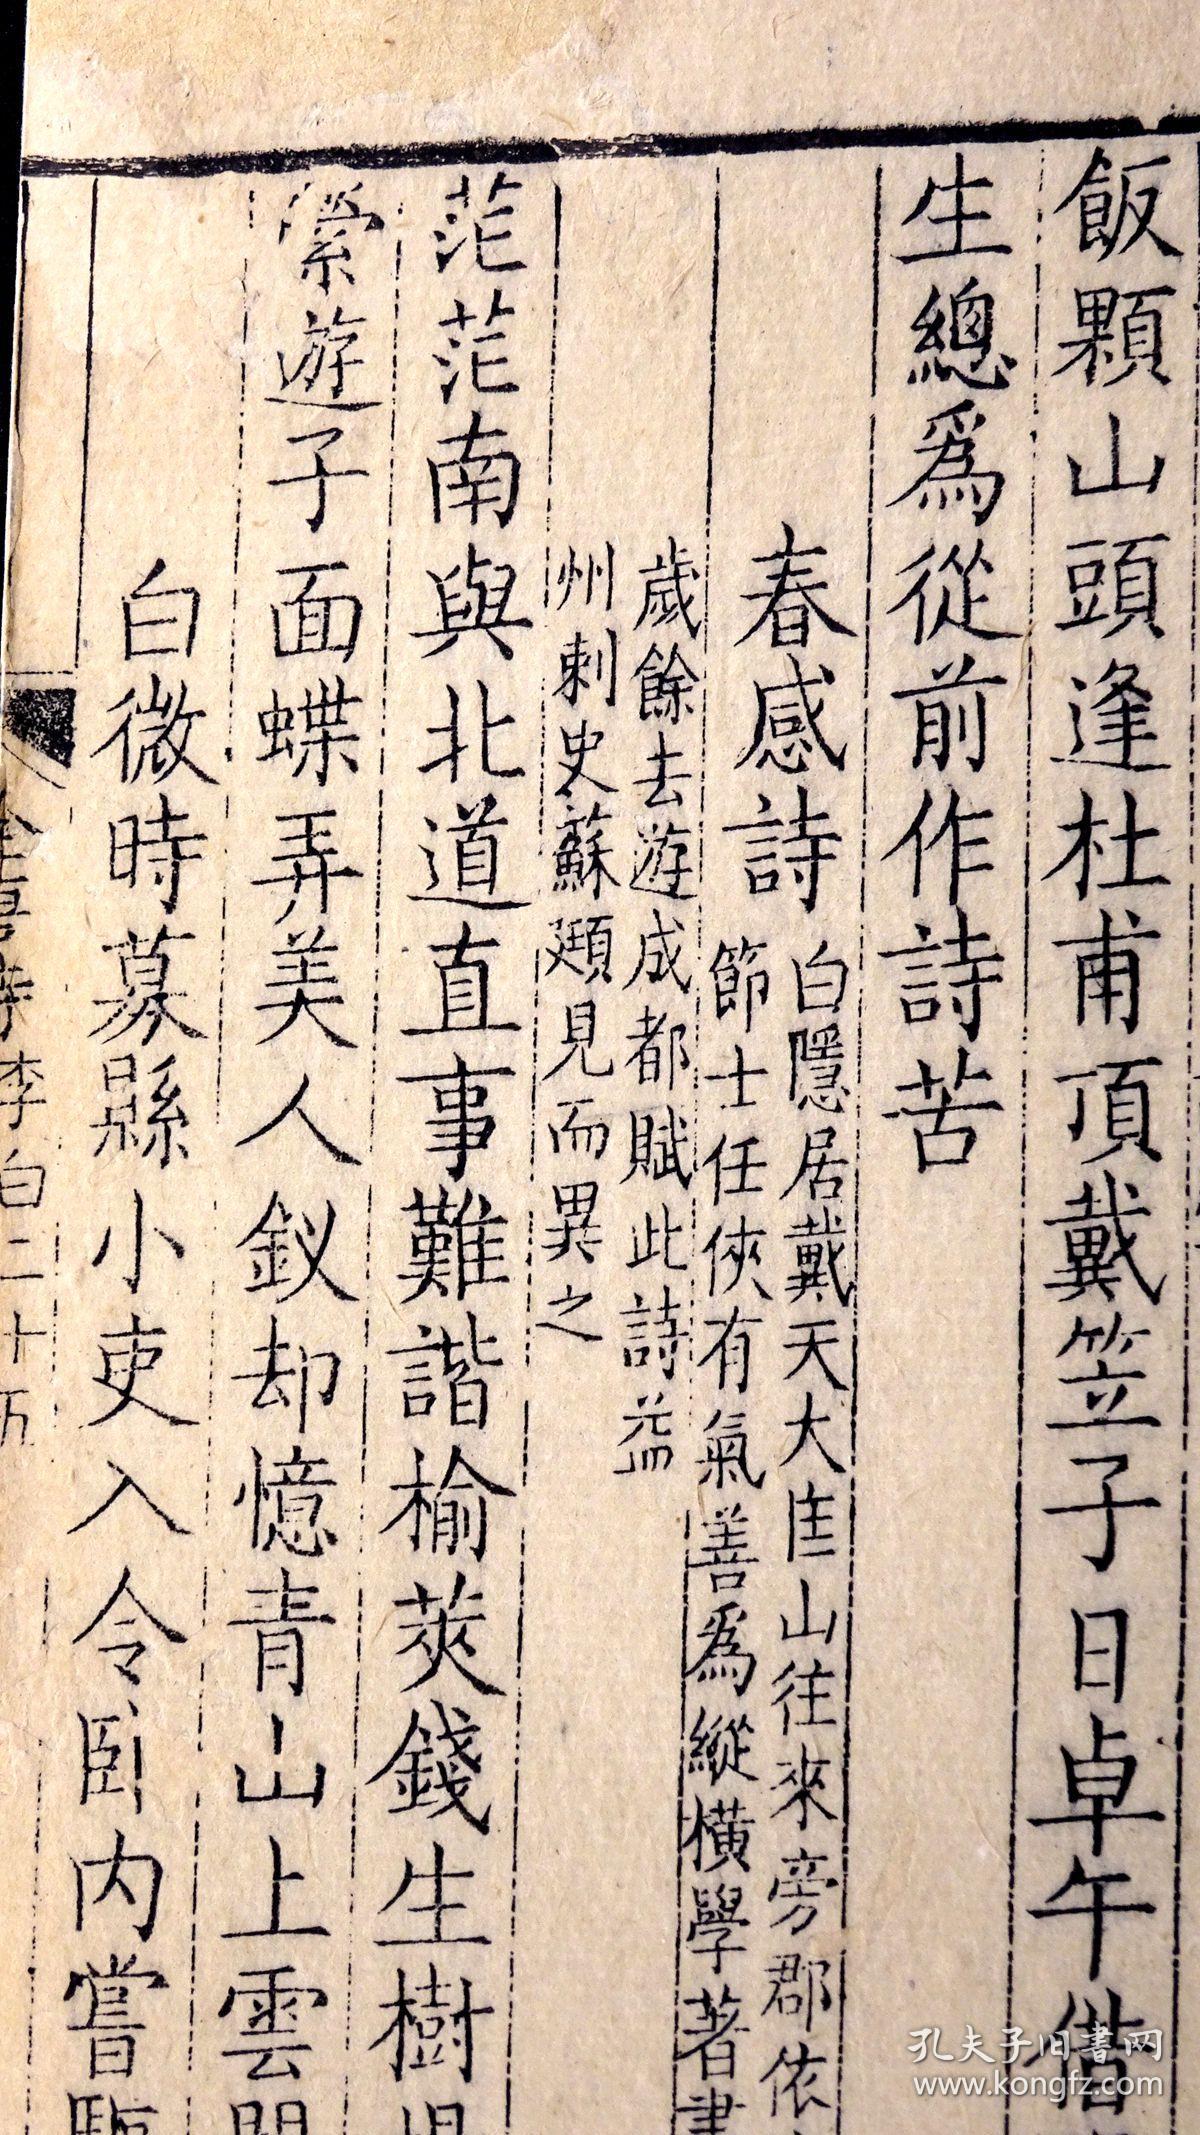 飯顆山頭逢杜甫頂戴笠子日卓午借
生總爲從前作詩苦
春感詩
白隱居戴天大匡山往來旁郡依
節士任俠有氣善爲縱橫學著書
歲餘去遊成都賦此詩益
州刺史蘇頲見而異之
茫茫南與北道直事難諧榆莢錢生樹
縈遊子面蝶弄美人釵却憶青山上雲
白微時募縣小吏入令臥内嘗
李白二十五
孔夫子旧書网
www.kongfz.com